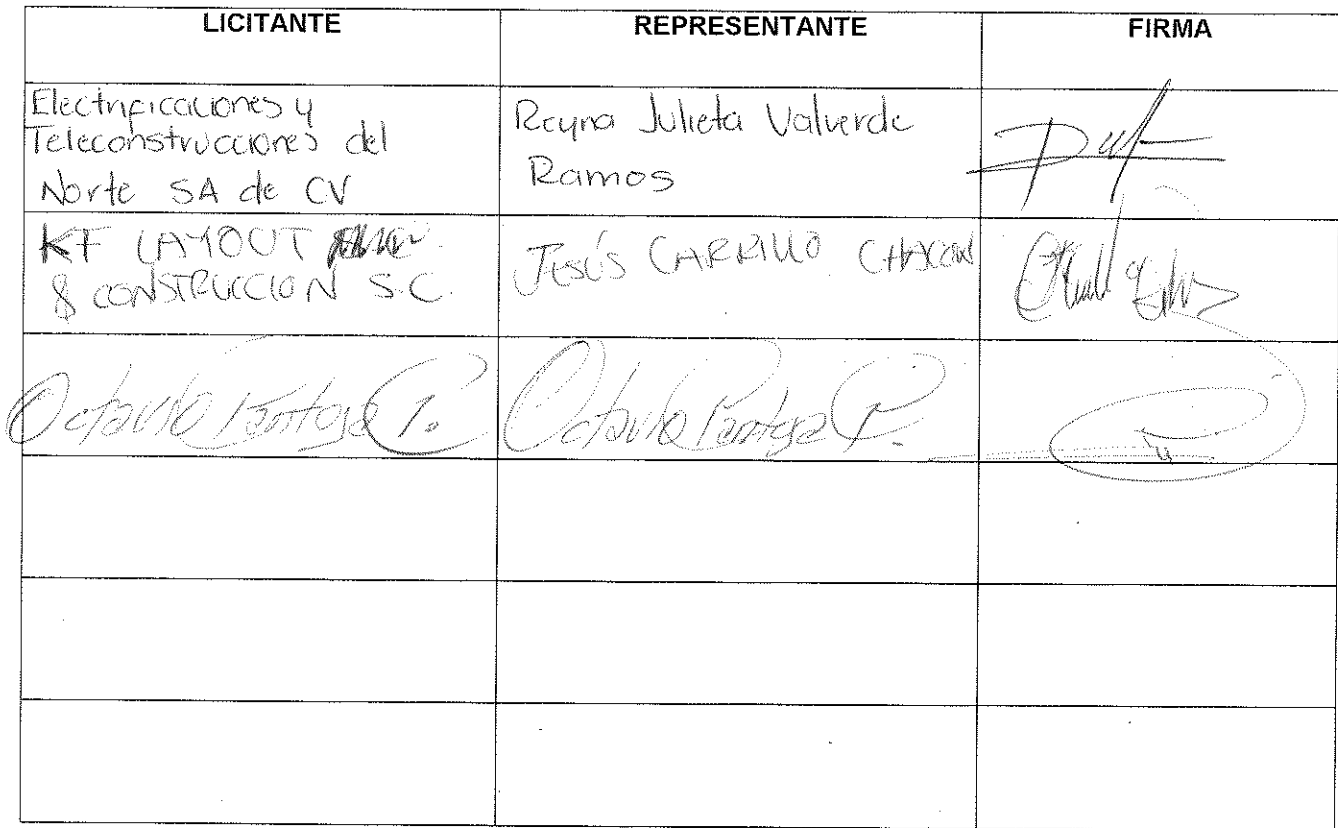 LICITANTE REPRESENTANTE FIRMA
Electrificaciones y
Teleconstrucciones del
Norte SA de CV
Reyna Julieta Valverde
Ramos
KF LAYOUT
& CONSTRUCCION S.C.
JESÚS CARRILLO CHACON
Octavio Pantoja
Octavio Pantoja